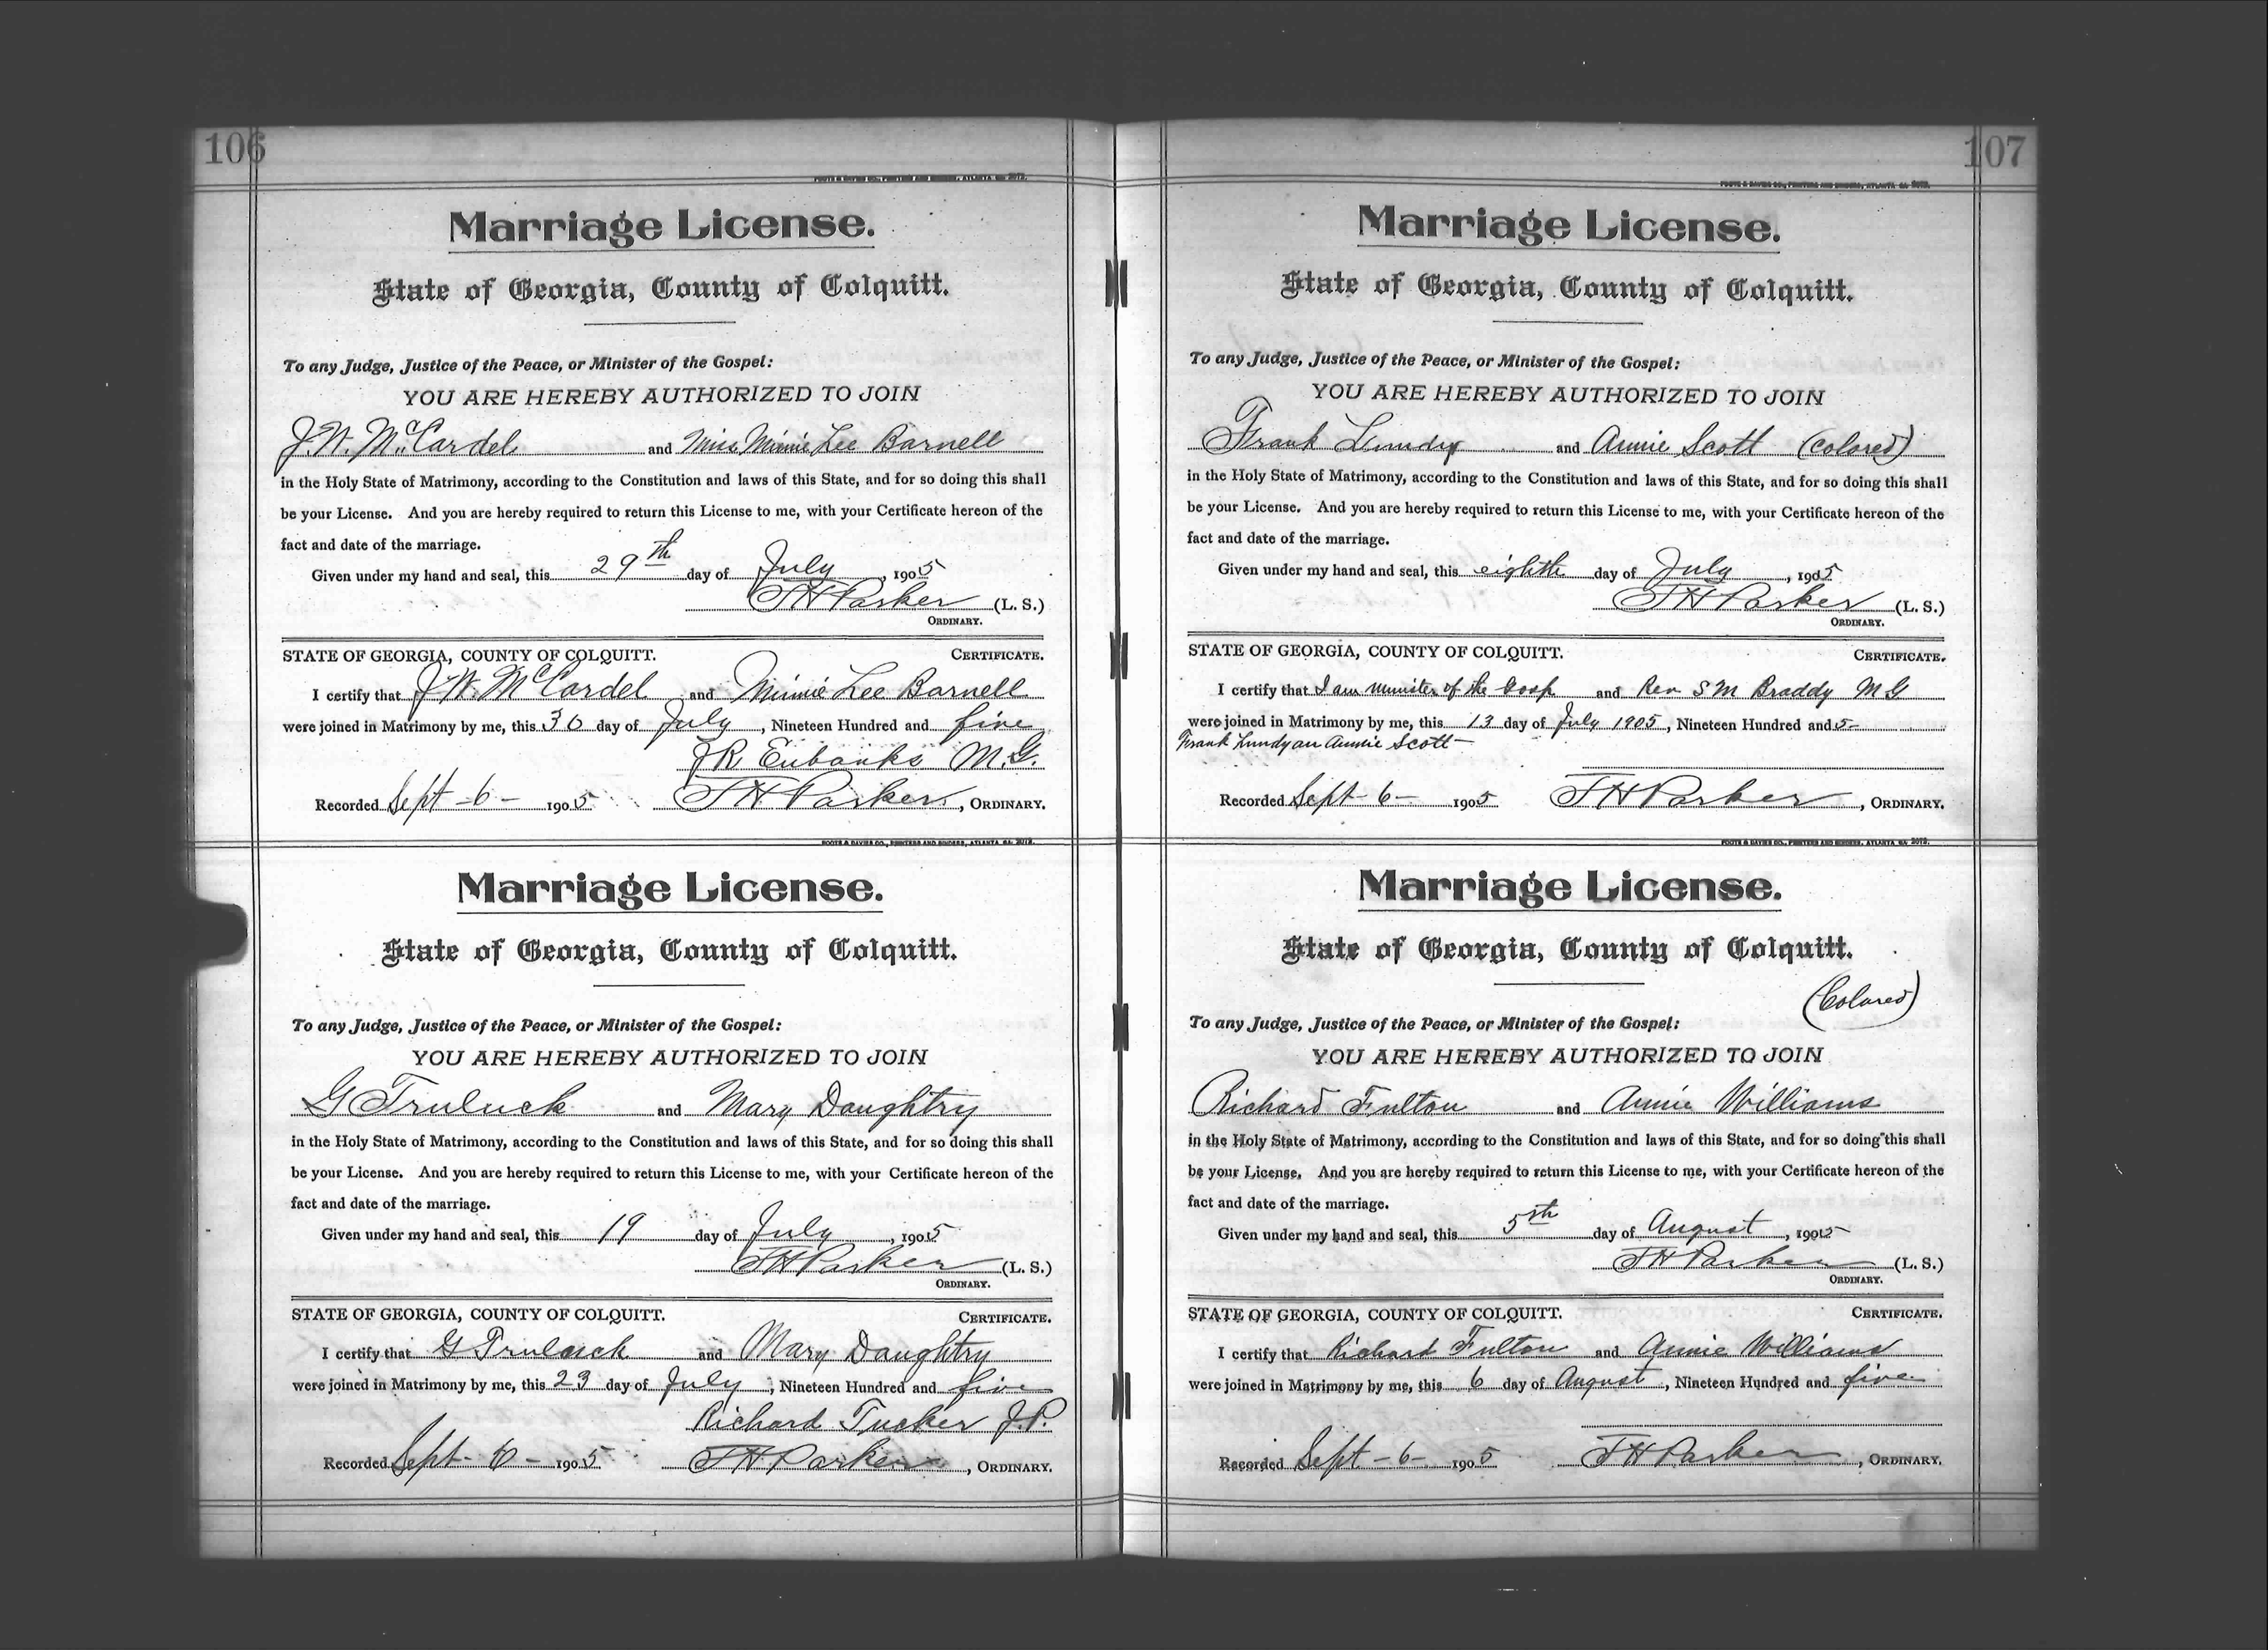 106
FOOTE & DAVIES CO., PRINTERS AND BINDERS, ATLANTA, GA. 2072.
Marriage License.
State of Georgia, County of Colquitt.
To any Judge, Justice of the Peace, or Minister of the Gospel:
YOU ARE HEREBY AUTHORIZED TO JOIN
J. W. McCardel and Miss Minnie Lee Barnell
in the Holy State of Matrimony, according to the Constitution and laws of this State, and for so doing this shall
be your License. And you are hereby required to return this License to me, with your Certificate hereon of the
fact and date of the marriage.
Given under my hand and seal, this 29th day of July, 1905
T H Parker (L. S.)
ORDINARY.
STATE OF GEORGIA, COUNTY OF COLQUITT. CERTIFICATE.
I certify that J W McCardel and Minnie Lee Barnell
were joined in Matrimony by me, this 30 day of July, Nineteen Hundred and five
J R Eubanks M.G.
Recorded Sept -6- 1905 T H Parker, ORDINARY.
FOOTE & DAVIES CO., PRINTERS AND BINDERS, ATLANTA, GA. 2072.
Marriage License.
State of Georgia, County of Colquitt.
To any Judge, Justice of the Peace, or Minister of the Gospel:
YOU ARE HEREBY AUTHORIZED TO JOIN
G Truluck and Mary Daughtry
in the Holy State of Matrimony, according to the Constitution and laws of this State, and for so doing this shall
be your License. And you are hereby required to return this License to me, with your Certificate hereon of the
fact and date of the marriage.
Given under my hand and seal, this 19 day of July, 1905
T H Parker (L. S.)
ORDINARY.
STATE OF GEORGIA, COUNTY OF COLQUITT. CERTIFICATE.
I certify that G Truluck and Mary Daughtry
were joined in Matrimony by me, this 23 day of July, Nineteen Hundred and five
Richard Tucker J.P.
Recorded Sept - 6 - 1905 T H Parker, ORDINARY.
107
FOOTE & DAVIES CO., PRINTERS AND BINDERS, ATLANTA, GA. 2072.
Marriage License.
State of Georgia, County of Colquitt.
To any Judge, Justice of the Peace, or Minister of the Gospel:
YOU ARE HEREBY AUTHORIZED TO JOIN
Frank Lundy and Annie Scott (Colored)
in the Holy State of Matrimony, according to the Constitution and laws of this State, and for so doing this shall
be your License. And you are hereby required to return this License to me, with your Certificate hereon of the
fact and date of the marriage.
Given under my hand and seal, this eighth day of July, 1905
T H Parker (L. S.)
ORDINARY.
STATE OF GEORGIA, COUNTY OF COLQUITT. CERTIFICATE.
I certify that I am minister of the Gosp and Rev S M Braddy M G
were joined in Matrimony by me, this 13 day of July 1905, Nineteen Hundred and 5-
Frank Lundy an Annie Scott
Recorded Sept - 6 - 1905 T H Parker, ORDINARY.
FOOTE & DAVIES CO., PRINTERS AND BINDERS, ATLANTA, GA. 2072.
Marriage License.
State of Georgia, County of Colquitt.
(Colored)
To any Judge, Justice of the Peace, or Minister of the Gospel:
YOU ARE HEREBY AUTHORIZED TO JOIN
Richard Fulton and Annie Williams
in the Holy State of Matrimony, according to the Constitution and laws of this State, and for so doing this shall
be your License. And you are hereby required to return this License to me, with your Certificate hereon of the
fact and date of the marriage.
Given under my hand and seal, this 5th day of August, 1905
T H Parker (L. S.)
ORDINARY.
STATE OF GEORGIA, COUNTY OF COLQUITT. CERTIFICATE.
I certify that Richard Fulton and Annie Williams
were joined in Matrimony by me, this 6 day of August, Nineteen Hundred and five
Recorded Sept - 6 - 1905 T H Parker, ORDINARY.